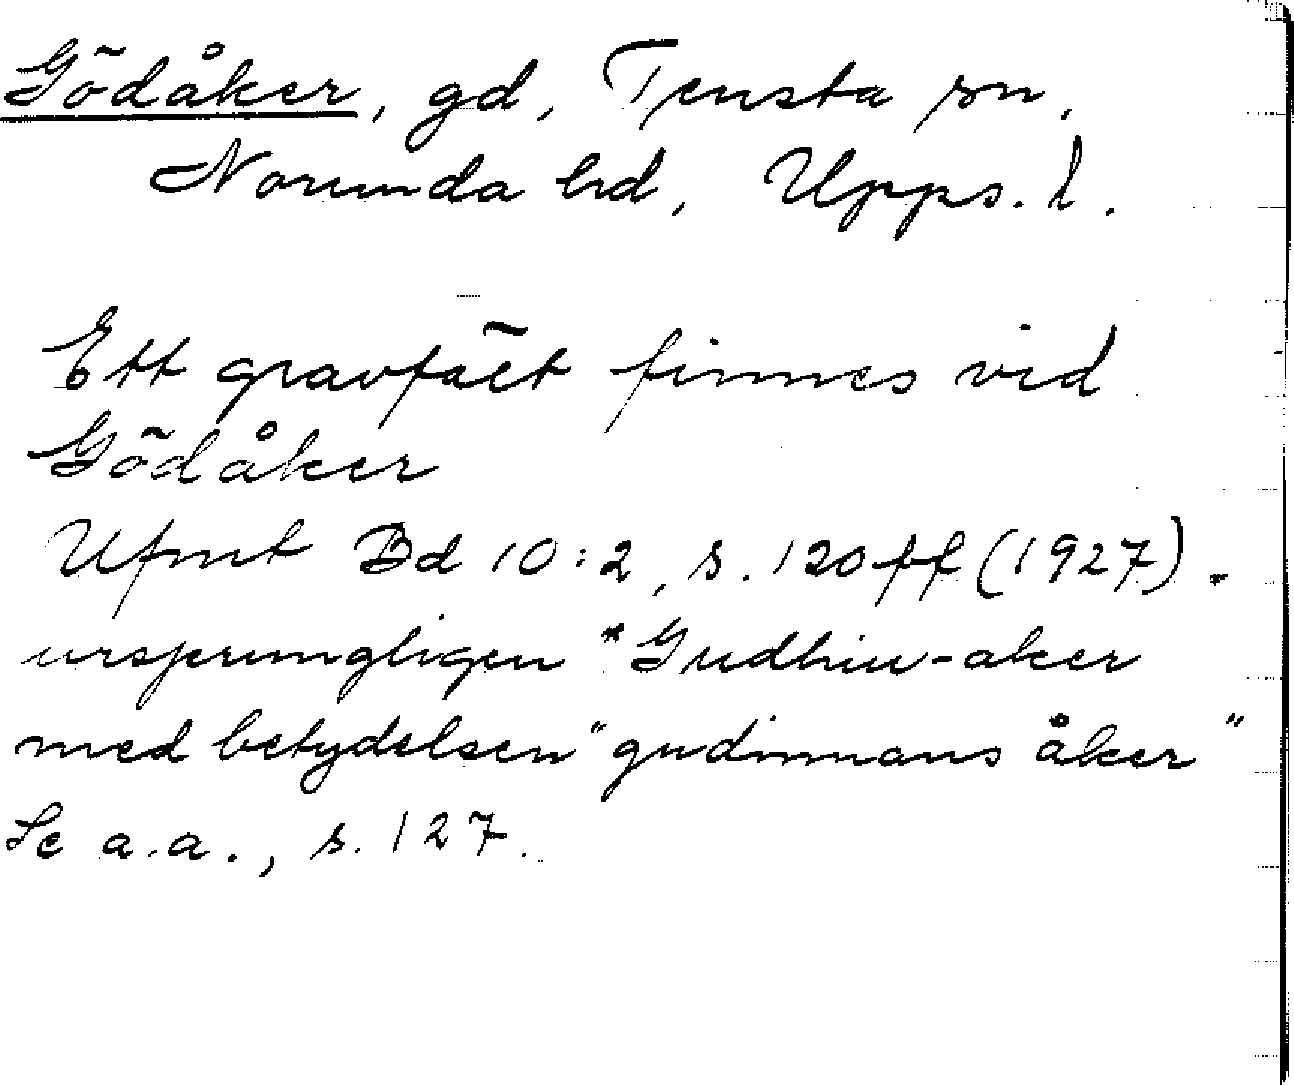 Gödåker, gd, Tensta sn,
Norunda hd, Upps. l.
Ett gravfält finnes vid
Gödåker
Ufmt Bd 10:2, s. 120 ff (1927).
ursprungligen *Gudhiu-aker
med betydelsen "gudinnans åker"
Se a.a., s. 127.